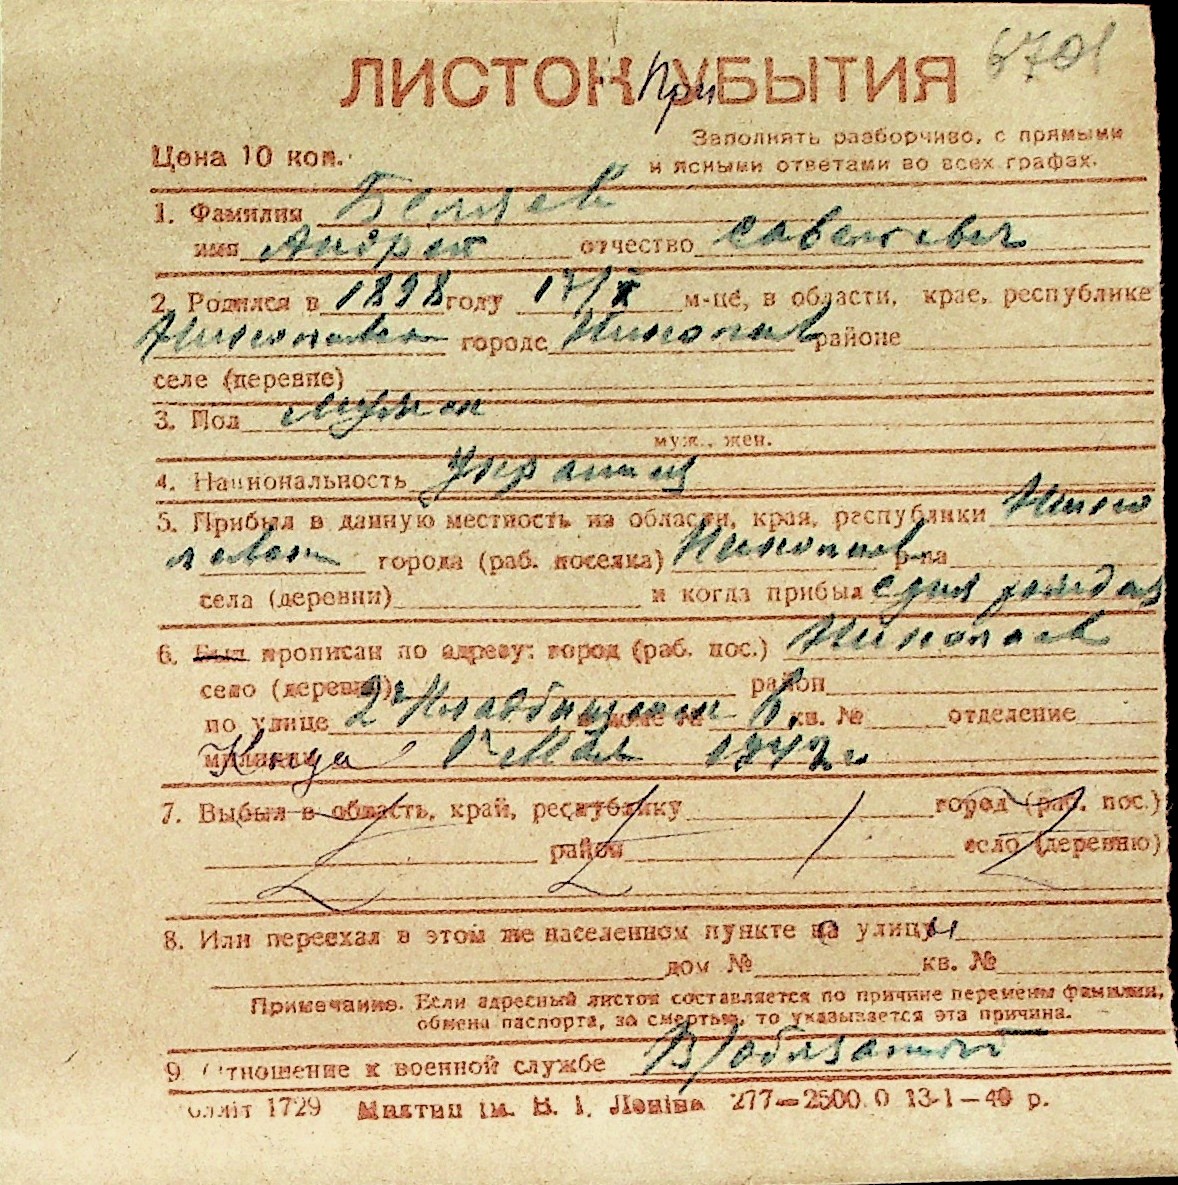 6701
ЛИСТОК При УБЫТИЯ
Заполнять разборчиво, с прямыми
Цена 10 коп.
и ясными ответами во всех графах.
1. Фамилия Беляев
имя Андрей отчество Савельевич
2. Родился в 1898 году 17/X м-це, в области, крае, республике
Николаевск городе Николаев районе
селе (деревне)
3. Пол мужск
муж., жен.
4. Национальность Украинец
5. Прибыл в данную местность из области, края, республики Нико
лаевск города (раб. поселка) Николаев р-на
села (деревни) и когда прибыл с дня рожден
6. Был прописан по адресу: город (раб. пос.) Николаев
село (деревня) район
по улице 2я Кладбищен доме № 6. кв. № отделение
милиции Когда 1го Мая 1942 г
7. Выбыл в область, край, республику город (раб. пос.)
район село (деревню)
8. Или переехал в этом же населенном пункте на улицу
дом № кв. №
Примечание. Если адресный листок составляется по причине перемены фамилии,
обмена паспорта, за смертью, то указывается эта причина.
9. Отношение к военной службе В/обязанный
1729 Миктип ім. В. І. Леніна 277—2500 0 13-1—40 р.